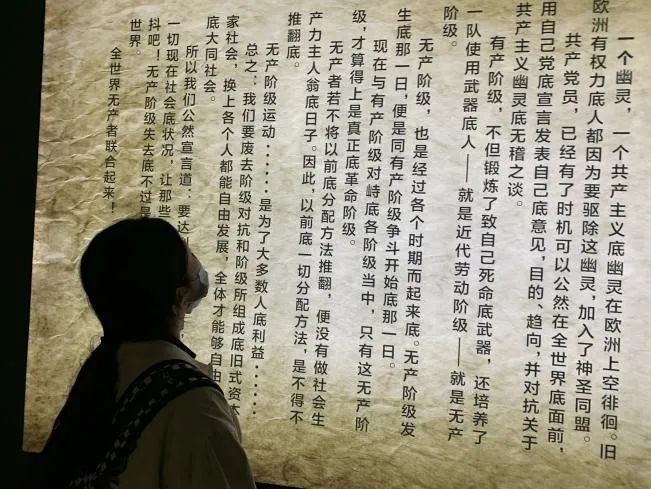 一个幽灵,一个共产主义底幽灵在欧洲上空徘徊。旧
欧洲有权力底人都因为要驱除这幽灵,加入了神圣同盟。
共产党员,已经有了时机可以公然在全世界底面前,
用自己党底宣言发表自己底意见,目的、趋向,并对抗关于
共产主义幽灵底无稽之谈。
有产阶级,不但锻炼了致自己死命底武器,还培养了
一队使用武器底人——就是近代劳动阶级——就是无产
阶级。
无产阶级,也是经过各个时期而起来底。无产阶级发
生底那一日,便是同有产阶级争斗开始底那一日。
现在与有产阶级对峙底各阶级当中,只有这无产阶
级,才算得上是真正底革命阶级。
无产者若不将以前底分配方法推翻,便没有做社会生
产力主人翁底日子。因此,以前底一切分配方法,是不得不
推翻底。
无产阶级运动······是为了大多数人底利益······
总之:我们要废去阶级对抗和阶级所组成底旧式资本
家社会,换上各个人都能自由发展,全体才能够自由
底大同社会。
所以我们公然宣言道:要达
一切现在社会底状况,让那些
抖吧!无产阶级失去底不过是
世界。
全世界无产者联合起来!